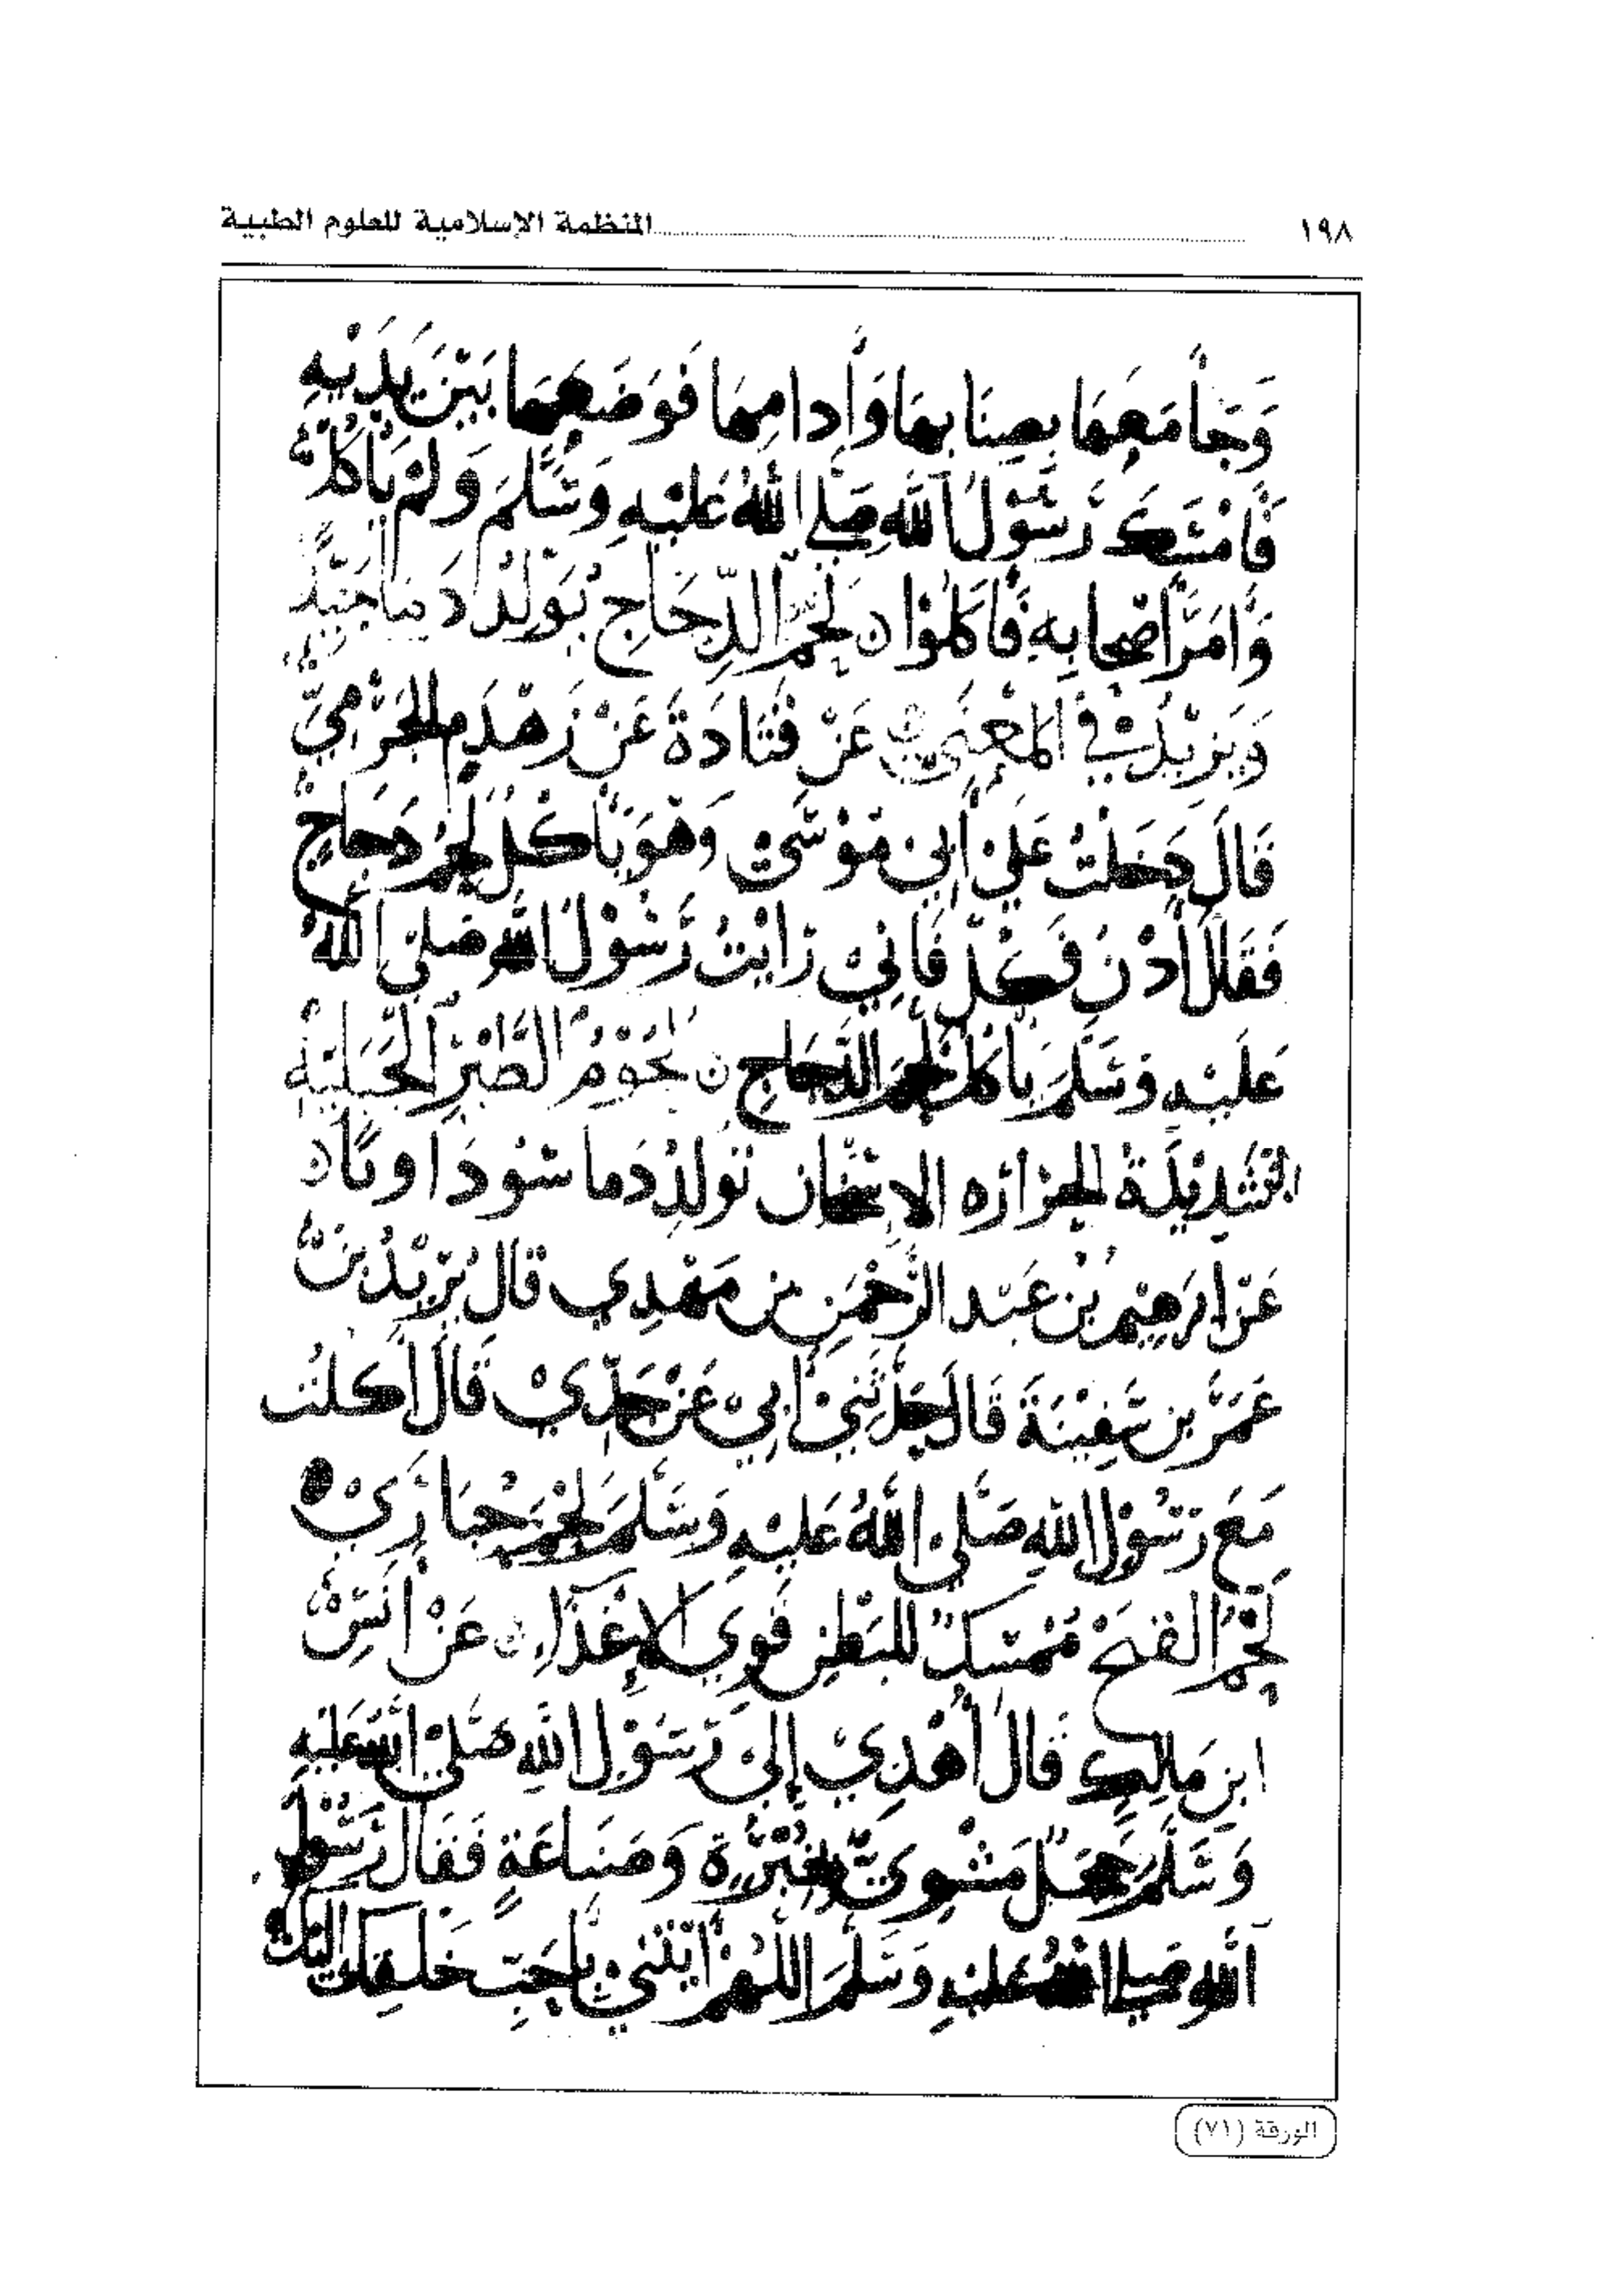 ١٩٨ المنظمة الإسلامية للعلوم الطبية
وَجَآ مَعَهَا بِصِنَابِهَا وَأُدَامِهَا فَوَضَعَهَا بَيْنَ يَدَيْهِ
فَأَمْسَكَ رَسُوْلُ اللهِ صَلَّى اللهُ عَلَيْهِ وَسَلَّمَ وَلَمْ يَأْكُلْ
وَأَمَرَ أَصْحَابِهِ فَأَكَلُوْا ن لَحْمُ الدِّجَاجِ يُوَلِّدُ دَمًا جَيِّدًا
وَيَزِيْدُ فِي الْمَعْنَى عَنْ قَتَادَةَ عَنْ زَهْدَمٍ الْجَرْمِيّ
قَالَ دَخَلْتُ عَلَى أَبِي مُوْسَى وَهُوَ يَأْكُلُ لَحْمَ دَجَاجٍ
فَقَالَ أُدْنُ فَكُلْ فَإِنِّيْ رَايْتُ رَسُوْلَ اللهِ صَلَّى اللهُ
عَلَيْهِ وَسَلَّمَ يَأْكُلُ لَحْمَ الدَّجَاجِ ن لُحُوْمُ الطَّيْرِ الْجَبَلِيَّةِ
الشَدِيْدَةُ الحزاره الاسخان تولدُ دَما سَوْدَاويًا ن
عَنْ ابرَهِيم بْن عَبْد الرَّحْمَنِ بن مَهْدِي قَال بُرَيْدُ بْنُ
عُمَرَ بن سَفِيْنَةَ قَالَ حَدَّثَنِيْ أَبِيْ عَنْ جَدِّيْ قَالَ أَكَلْتُ
مَعَ رَسُوْلِ اللهِ صَلَّى اللهُ عَلَيْهِ وَسَلَّمَ لَحْمَ حُبَارَىْ ن
لَحْمُ القبَح مُمْسِكٌ لِلبَطْنِ قَوِي الاِغْذَاءِ ن عَنْ أَنَسِ
ابنِ مَالِكٍ قَالَ أُهْدِيْ إِلَى رَسُوْلِ اللهِ صَلَّىْ اللهُ عَلَيْهِ
وَسَلَّمَ حَجَلٌ مَشْوِيٌّ بِخُبْزَةٍ وَصَنَاعَةٍ فَقَالَ رَسُوْلُ
اللهِ صَلى اللهُ عَلَيْهِ وَسَلَّمَ اللَّهُمَّ أيْتِنِيْ بِأَحَبِّ خَلْقِكَ إليْكَ
الورقة (٧١)